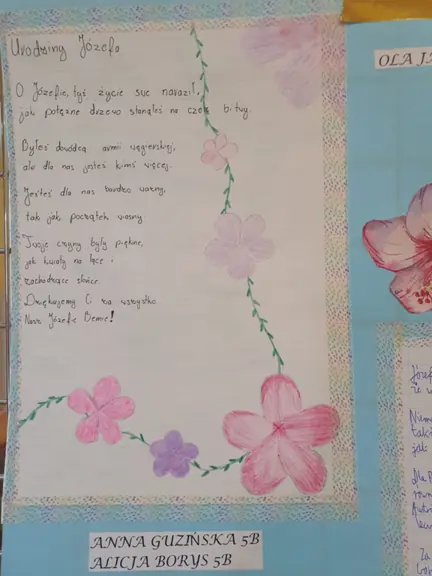 Urodziny Józefa
O Józefie, tyś życie swe naraził,
jak potężne drzewo stanąłeś na czele bitwy.
Byłeś dowódcą armii węgierskiej,
ale dla nas jesteś kimś więcej.
Jesteś dla nas bardzo ważny,
tak jak początek wiosny
Twoje czyny były piękne,
jak kwiaty na łące i
zachodzące słońce.
Dziękujemy Ci za wszystko
Nasz Józefie Bemie!
ANNA GUZIŃSKA 5B
ALICJA BORYS 5B
OLA
Niem
jak
Za